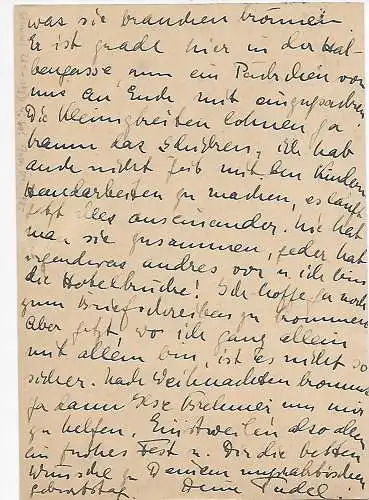 was sie brauchen können.
Er ist grade hier in der Hal-
bengasse, um ein Päckchen von
uns an Ende mit
Die Kleinigkeiten lohnen ja
kaum das Schicken, ich hab
auch nicht Zeit mit den Kindern
Handarbeiten zu machen, es läuft
jetzt alles auseinander. Nie hat
man sie zusammen, jeder hat
irgendwas andres vor u. ich bin
die Hotelbrücke! Ich hoffe ja noch
zum Briefschreiben zu kommen
aber jetzt, wo ich ganz allein
mit allem bin, ist es nicht so
sicher. Nach Weihnachten kommt
ja dann Ilse Brehmer uns mir
zu helfen. Einstweilen also allen
ein frohes Fest u. Dir die besten
Wünsche zu Deinem
Geburtstag. Deine